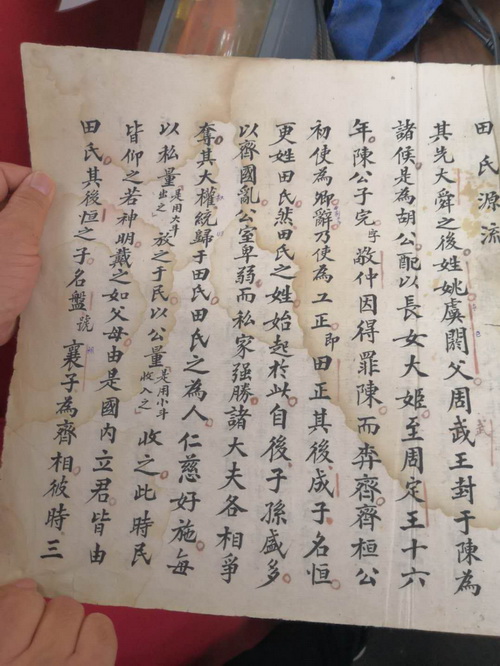 田氏源流
其先大舜之後姓姚虞閼父周武王封于陳為
諸候是為胡公配以長女大姬至周定王十六
年陳公子完字敬仲因得罪陳而奔齊齊桓公
初使為卿辭乃使為工正即田正其後成子名恒
更姓田氏然田氏之姓始起於此自後子孫盛多
以齊國亂公室卑弱而私家强勝諸大夫各相爭
奪其大權統歸于田氏田氏之為人仁慈好施每
以私量是用大斗出之放之于民以公量是用小斗收入之收之此時民
皆仰之若神明戴之如父母由是國内立君皆由
田氏其後恒之子名盤號襄子為齊相彼時三